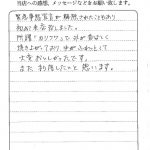 当店への感想、メッセージなどをお願い致します。
緊急事態宣言が解除されたこともあり
初めて来店致しました。
所謂“カリフワ”って、外が香ばしく
焼き上がっており、中がふわっとして
大変おいしかったです。
また、利用したいと思います。